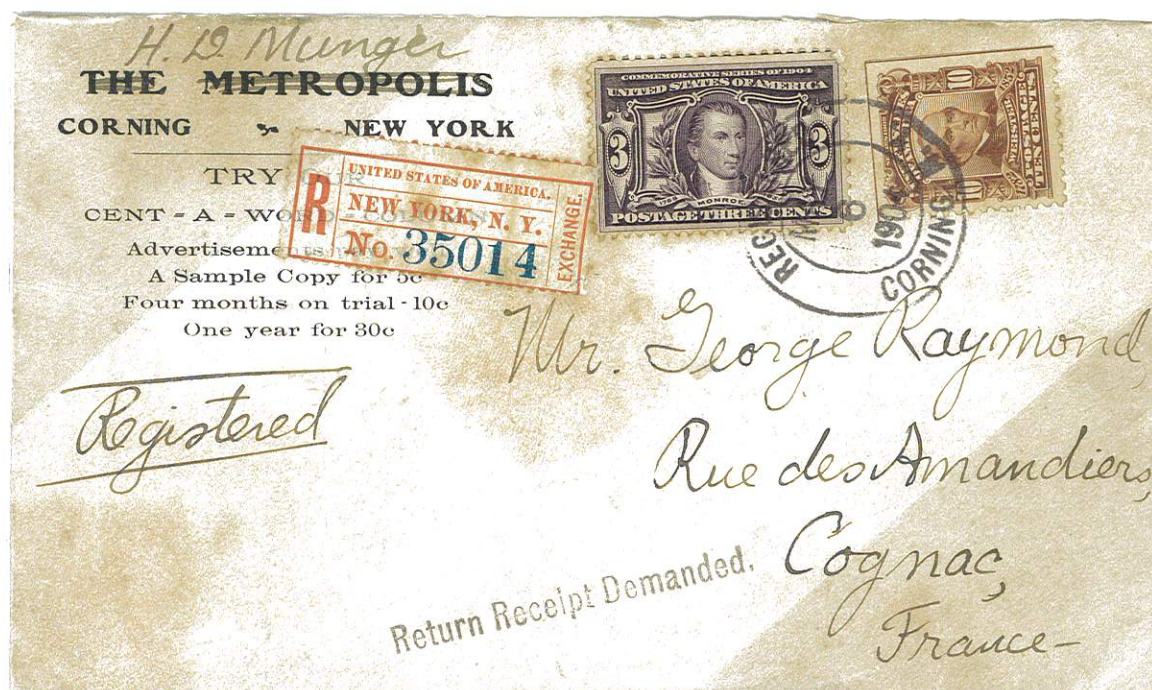 H. D. Munger
THE METROPOLIS
CORNING NEW YORK
TRY
CENT - A - WORD
Advertisements
A Sample Copy for 5c
Four months on trial - 10c
One year for 30c
R
UNITED STATES OF AMERICA.
NEW YORK, N. Y.
No. 35014
EXCHANGE.
COMMEMORATIVE SERIES OF 1904
UNITED STATES OF AMERICA
3 3
MONROE
POSTAGE THREE CENTS
10 10
CORNING
Registered
Mr. George Raymond
Rue des Amandiers,
Cognac,
France-
Return Receipt Demanded.